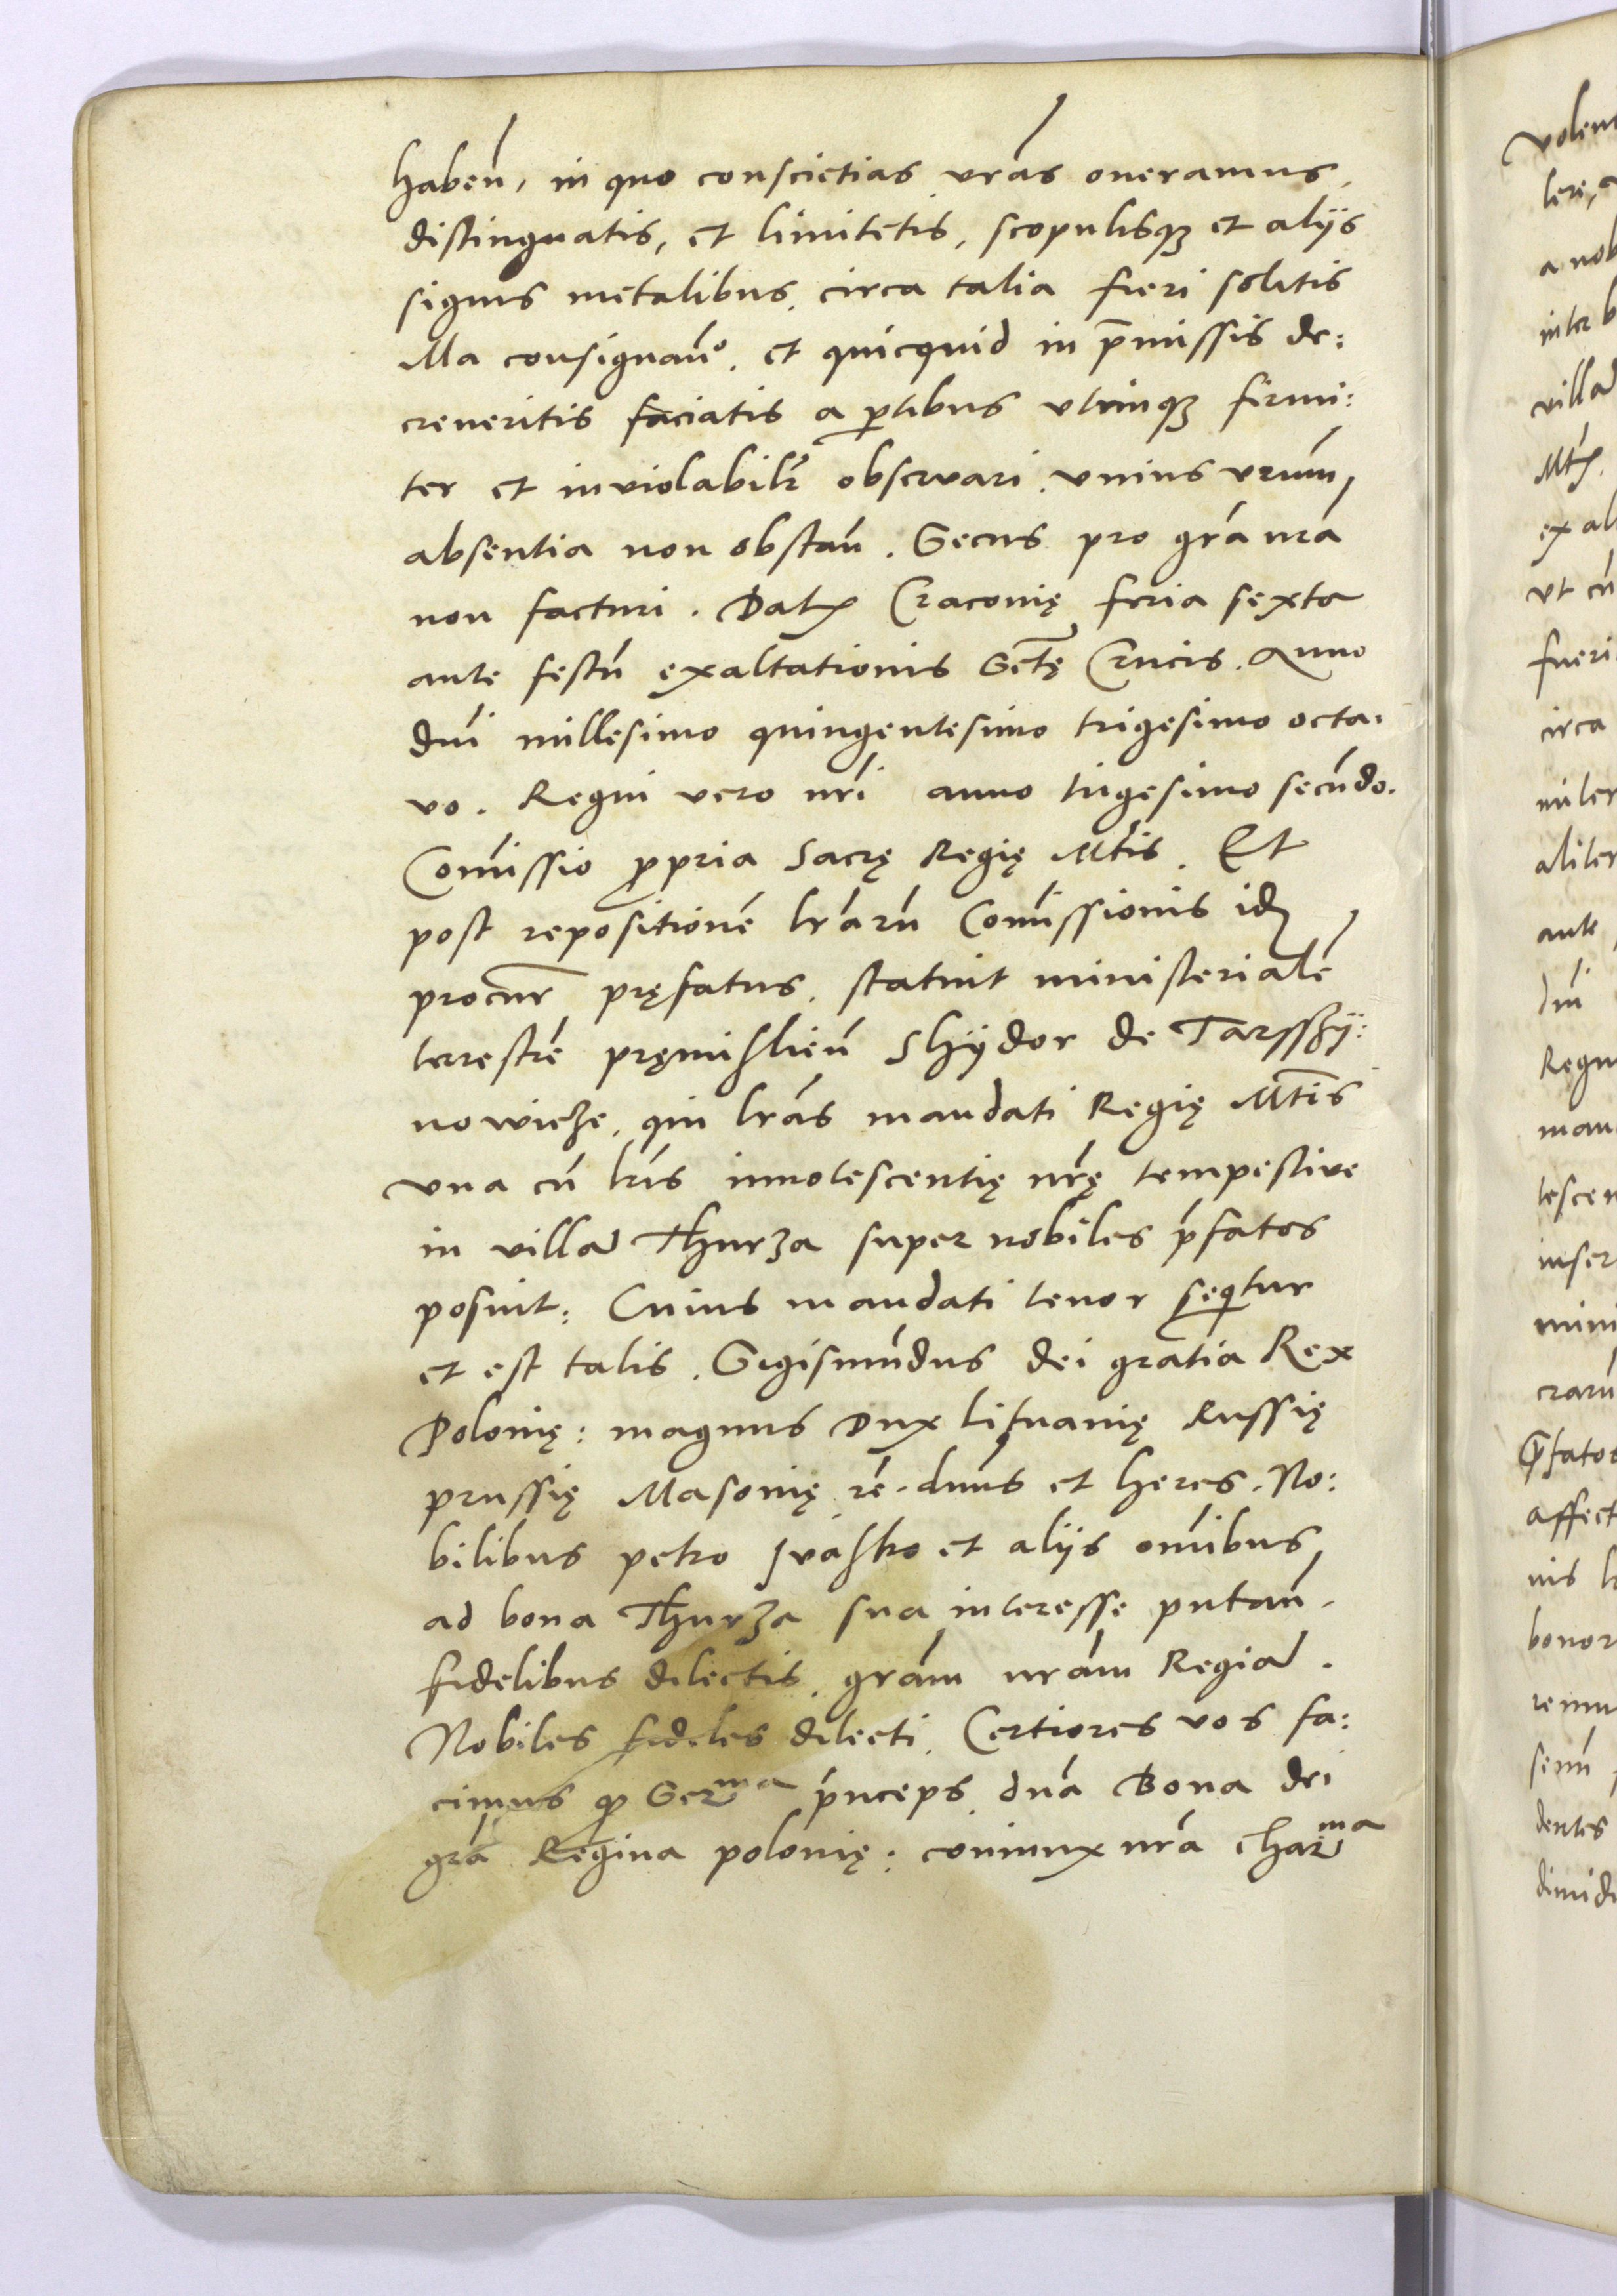 habeñ, in quo conscie͂tias vr̃as oneramus,
distinguatis, et limitetis, scopulisqꝫ et alijs
signis metalibus, circa talia fieri solitis
illa consignañ°. et quicquid in p̄missis de:
creveritis faciatis a ꝑtibus vtrinqꝫ firmi:
ter et inviolabilr̃ observari. vnius vr̃um
absentia non obstañ. Secus pro gr̃a nr̃a
non facturi. Datꝝ Craconię feria sexta
ante festũ exaltationis Sctę Crucis. Anno
dñi millesimo quingentesimo trigesimo octa:
vo. Regni vero nr̃i anno trigesimo secũdo.
Com̃issio ꝓpria Sacrę Regię Mt̃is. Et
post repositionẽ lr̃arũ Com̃issionis idẽ
procur̃ pręfatus. statuit ministerialẽ
terrestrẽ pręmislieñ Shÿdor de Tarssÿ:
nowieze, qui lr̃as mandati Regię Mt̃is
vna cũ lr̃is innotescentię nr̃ę tempestive
in villã Thurza super nobiles p̃fatos
posuit: Cuius mandati tenor sequitur
et est talis. Sigismũdus dei gratia Rex
Polonię: magnus Dux lituanię Russię
prussię Masonię rẽ. dñus et heres. No:
bilibus petro Ivasko et alijs om̃ibus
ad bona Thurza sua interesse putañ.
fidelibus dilectis. gr̃am nr̃am Regiã.
Nobiles fideles dilecti. Certiores vos fa:
cimus ꝙ Serᵐᵃ p̃nceps, dña Bona dei
gr̃a Regina polonię: coniunx nr̃a charᵐᵃ